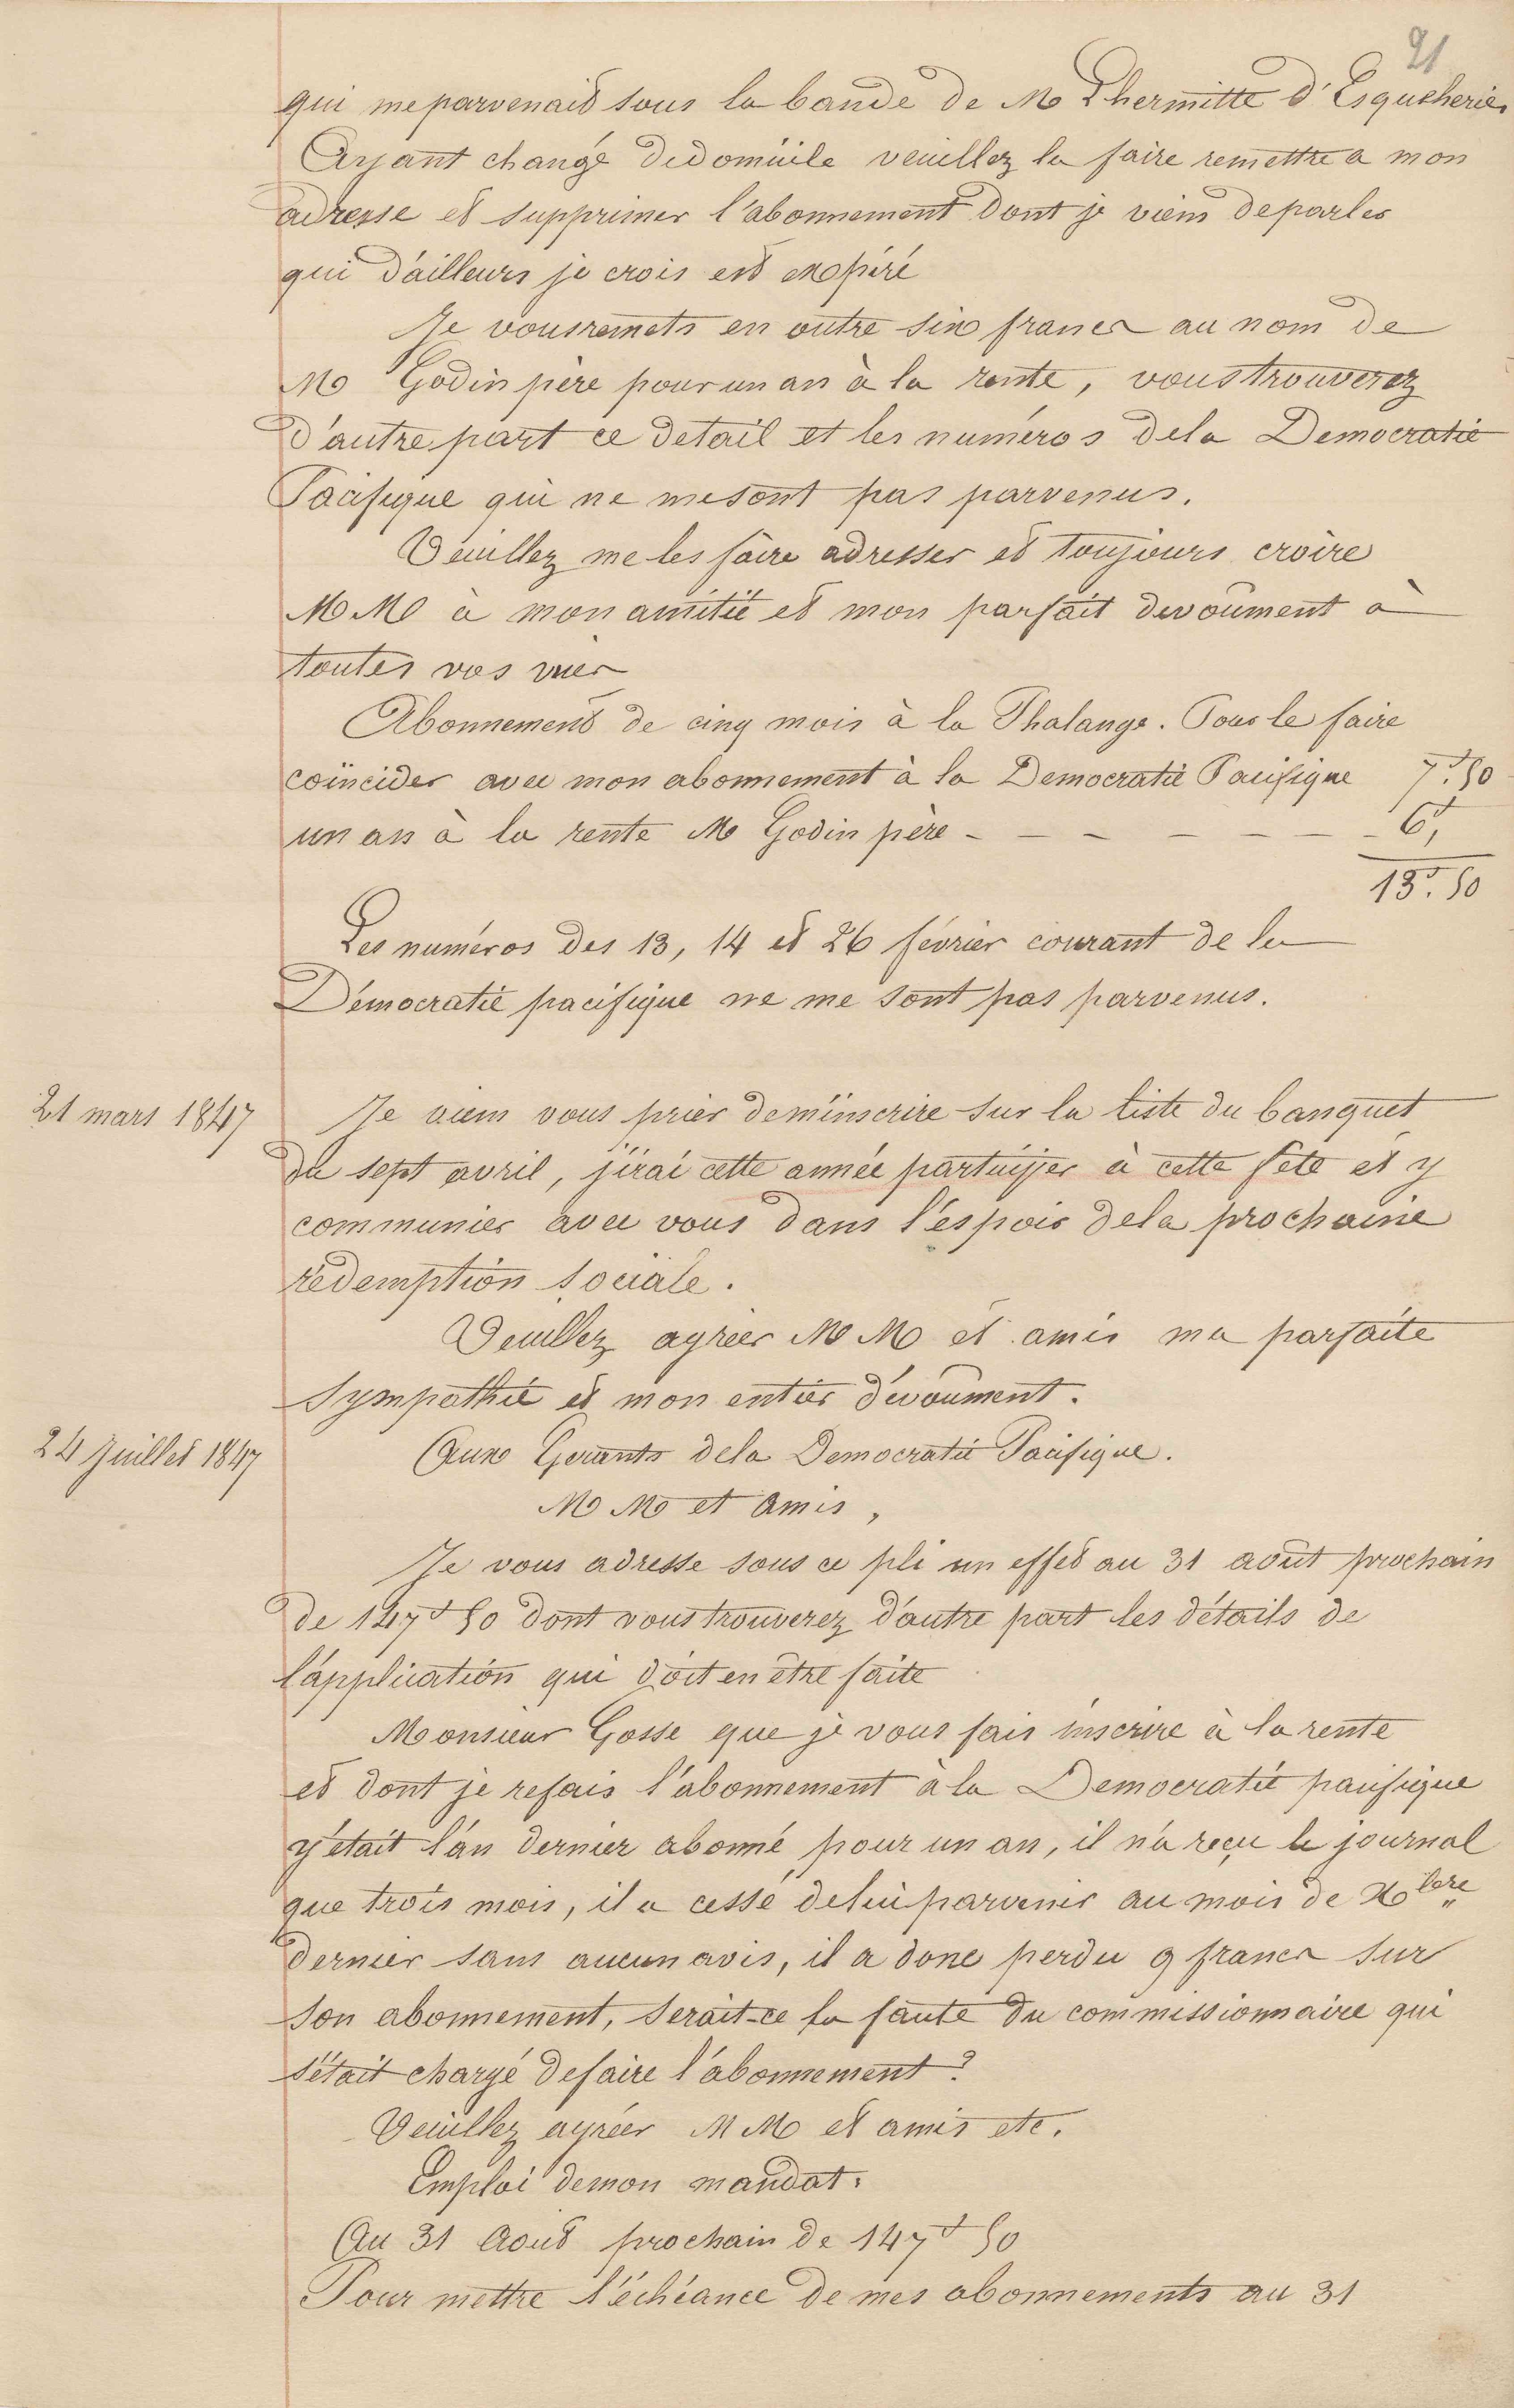 21
qui me parvenait sous la bande de M Lhermitte d'Esqueheries
Ayant changé de domicile veuillez la faire remettre a mon
adresse et supprimer l'abonnement dont je viens de parler
qui d'ailleurs je crois est expiré
Je vous remets en outre six francs au nom de
M Godin père pour un an à la rente, vous trouverez
d'autre part ce detail et les numéros de la Democratie
Pacifique qui ne me sont pas parvenus.
Veuillez me les faire adresser et toujours croire
MM à mon amitié et mon parfait devoûment à
toutes vos vues
Abonnement de cinq mois à la Phalange. Pour le faire
coïncider avec mon abonnement à la Democratie Pacifique 7f.50
un an à la rente M Godin père - - - - - - - 6f,
13f.50
Les numéros des 13, 14 et 26 février courant de la
Démocratie pacifique ne me sont pas parvenus.
21 mars 1847
Je viens vous prier de m'inscrire sur la liste du banquet
du sept avril, j'irai cette année participer à cette fete et y
communier avec vous dans l'espoir de la prochaine
rédemption sociale.
Veuillez agréer MM et amis ma parfaite
sympathie et mon entier dévoûment.
24 Juillet 1847
Aux Gerants de la Democratie Pacifique.
MM et Amis,
Je vous adresse sous ce pli un effet au 31 août prochain
de 147f50 dont vous trouverez d'autre part les détails de
l'application qui doit en être faite
Monsieur Gosse que je vous fais inscrire à la rente
et dont je refais l'abonnement à la Democratie pacifique
y était l'an dernier abonné pour un an, il n'a reçu le journal
que trois mois, il a cessé de lui parvenir au mois de Xbre
dernier sans aucun avis, il a donc perdu 9 francs sur
son abonnement, serait-ce la faute du commissionnaire qui
s'était chargé de faire l'abonnement?
Veuillez agréer MM et amis etc.
Emploi de mon mandat.
Au 31 Août prochain de 147f50
Pour mettre l'échéance de mes abonnements au 31